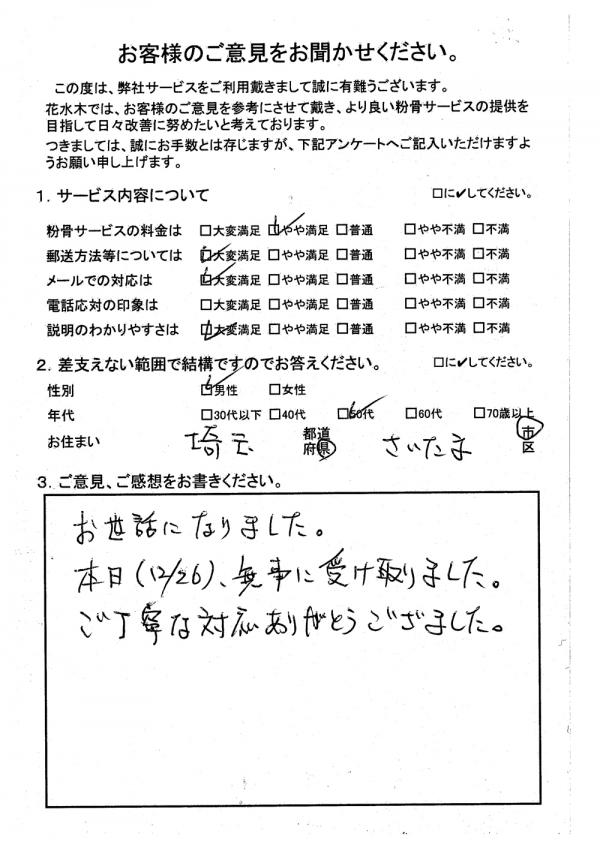 お客様のご意見をお聞かせください。
この度は、弊社サービスをご利用戴きまして誠に有難うございます。
花水木では、お客様のご意見を参考にさせて戴き、より良い粉骨サービスの提供を
目指して日々改善に努めたいと考えております。
つきましては、誠にお手数とは存じますが、下記アンケートへご記入いただけますよ
うお願い申し上げます。
1．サービス内容について □に✓してください。
粉骨サービスの料金は □大変満足 ☑やや満足 □普通 □やや不満 □不満
郵送方法等については ☑大変満足 □やや満足 □普通 □やや不満 □不満
メールでの対応は ☑大変満足 □やや満足 □普通 □やや不満 □不満
電話応対の印象は □大変満足 □やや満足 □普通 □やや不満 □不満
説明のわかりやすさは ☑大変満足 □やや満足 □普通 □やや不満 □不満
2．差支えない範囲で結構ですのでお答えください。 □に✓してください。
性別 ☑男性 □女性
年代 □30代以下 □40代 ☑50代 □60代 □70歳以上
お住まい 埼玉 都道府県 さいたま 市区
3．ご意見、ご感想をお書きください。
お世話になりました。
本日(12/26)、無事に受け取りました。
ご丁寧な対応ありがとうございました。